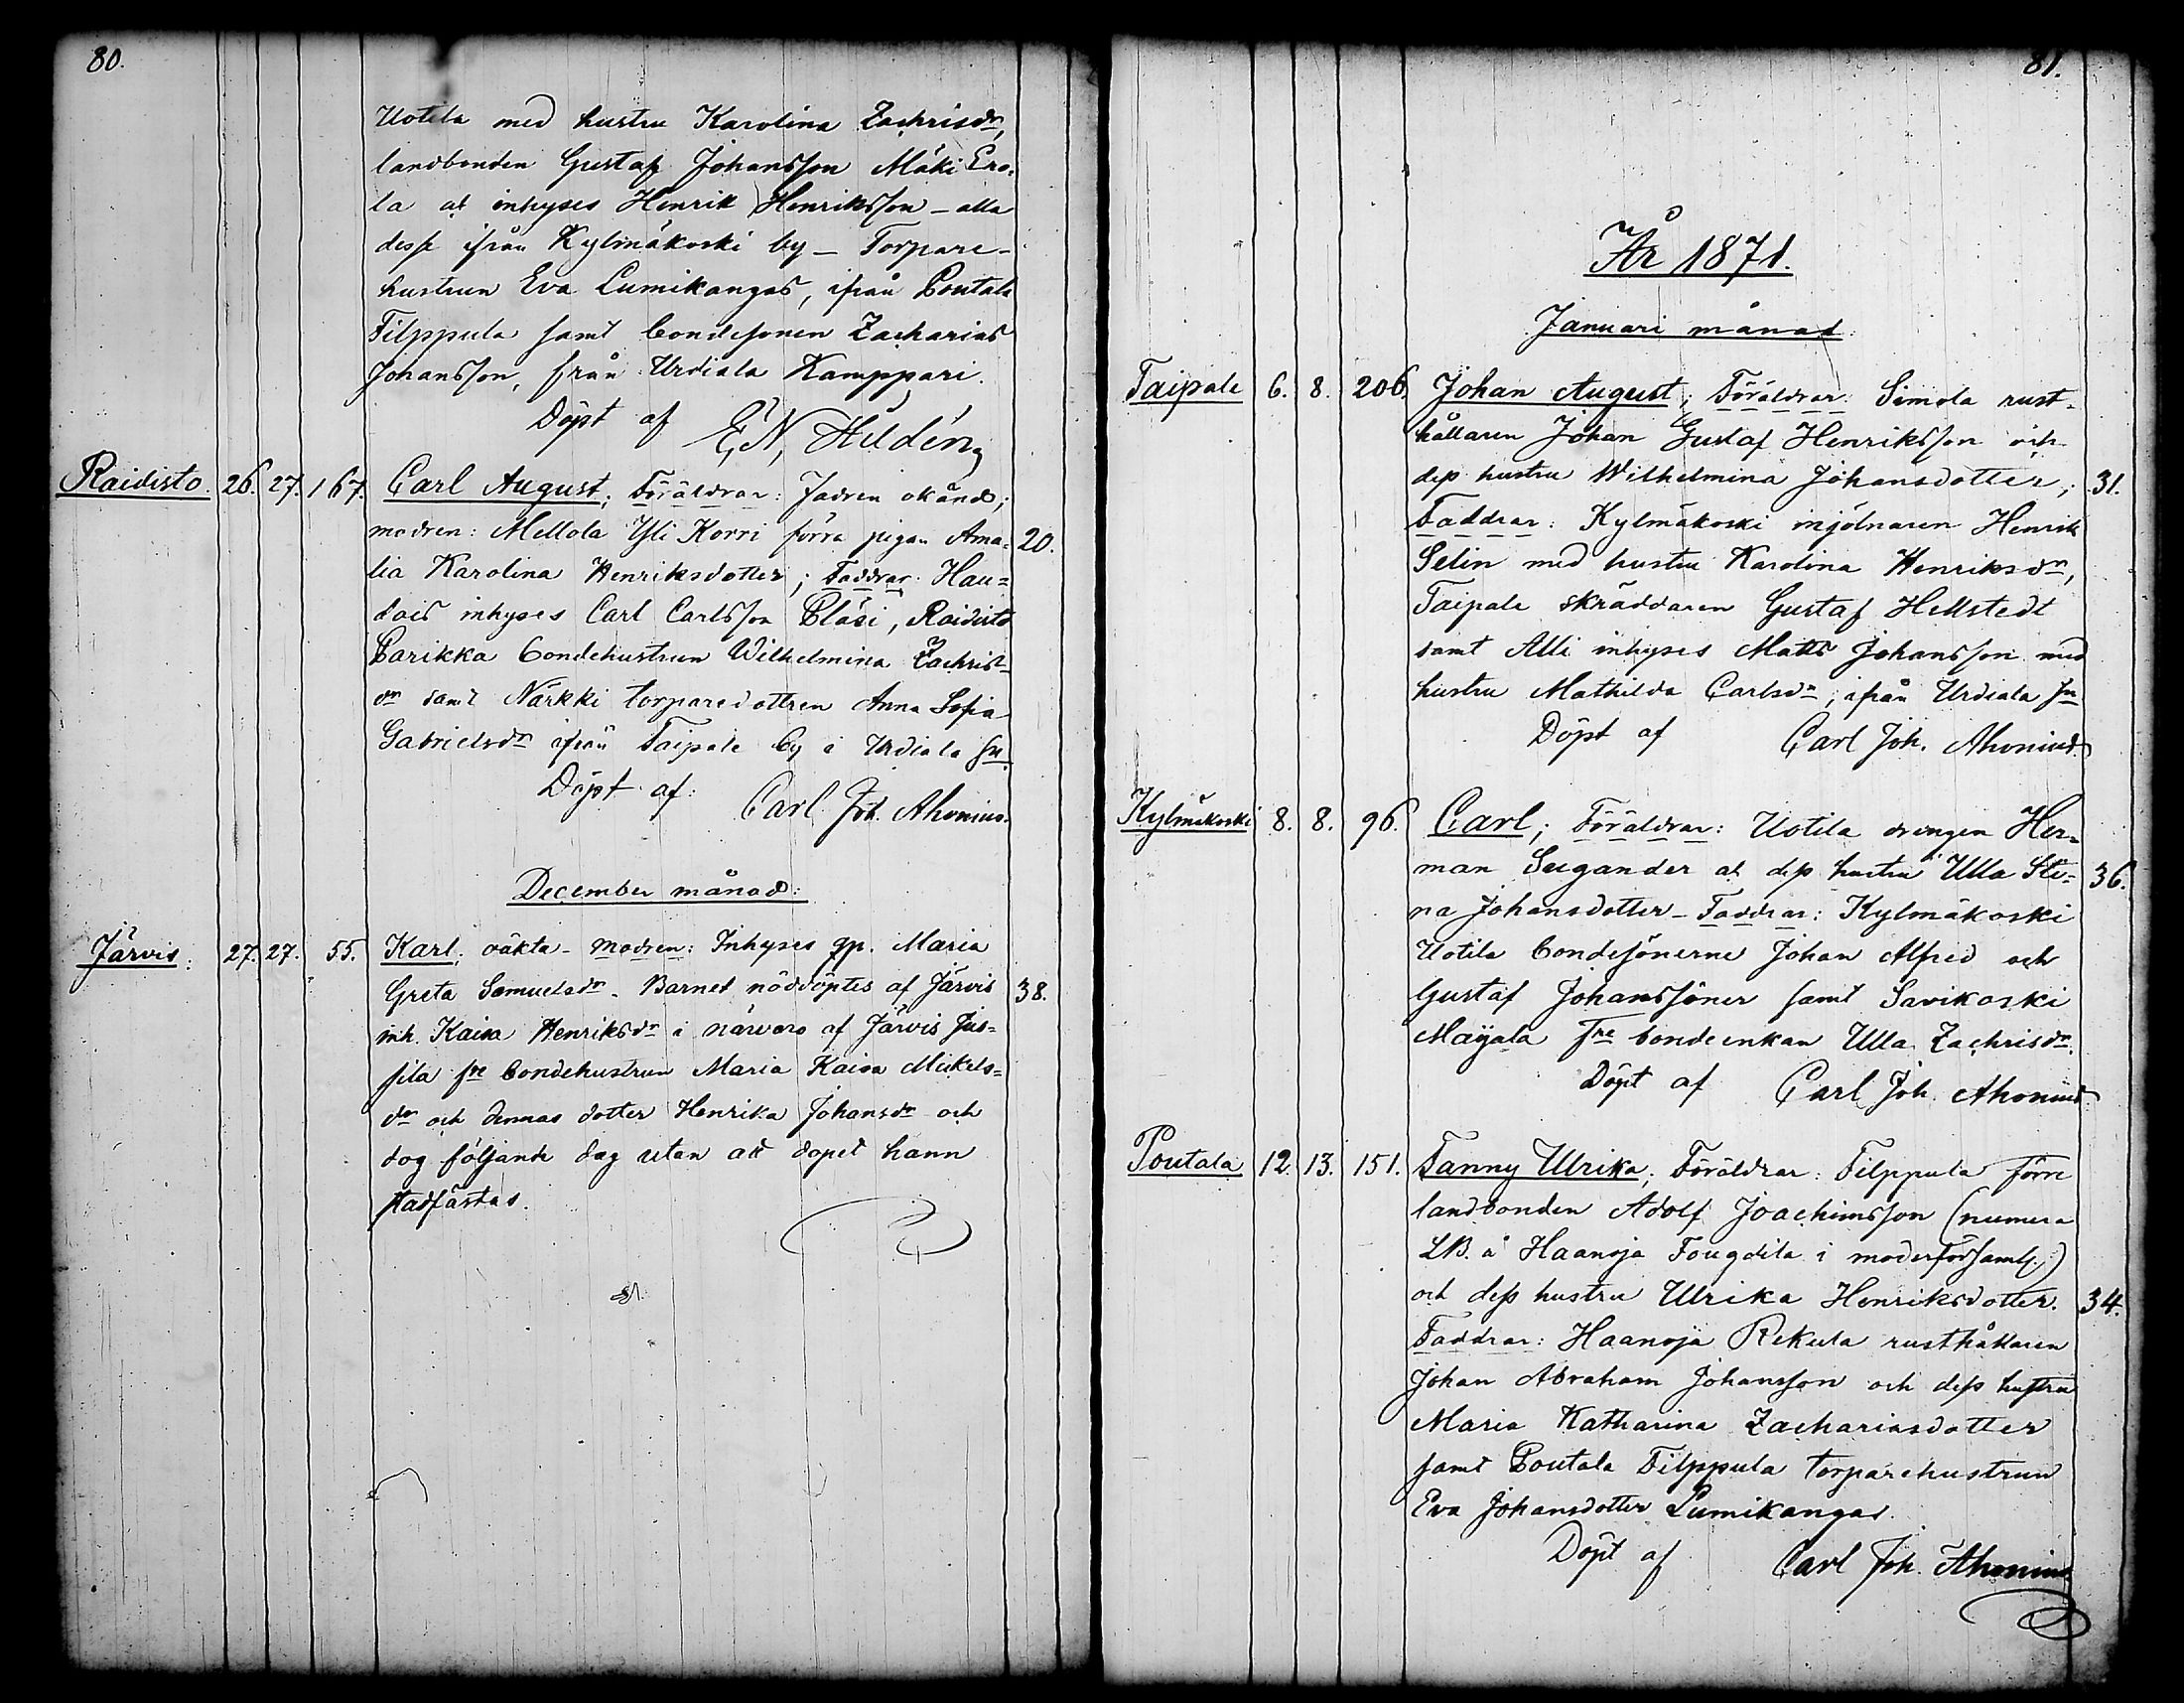 80.
Uotila med hustru Karolina Zachrisdr,
landbonden Gustaf Johansson Mäki Ero-
la at inhyses Henrik Henriksson – alla
desse ifrån Kylmäkoski by – Torpare-
hustrun Eva Lumikangas, ifrån Poutala
Filppula samt bondesonen Zacharias
Johansson, från Urdiala Kamppari.
Döpt af E, N, Hildén,
Raidisto. 26. 27. 167. Carl August; Föräldrar: Fadren okänd;
modren: Mellola Yli Korri förra pigan Ama- 20.
lia Karolina Henriksdotter; Faddrar: Hau=
dois inhyses Carl Carlsson Pläsi, Raidisto
Parikka bondehustrun Wilhelmina Zachris-
dr samt Närkki torparedottren Anna Sofia
Gabrielsdr ifrån Taipale by i Urdiala sn.
Döpt af: Carl Joh. Ahonius.
December månad:
Järvis: 27. 27. 55. Karl; oäkta – modren: Inhyses qp. Maria
Greta Samuelsdr – Barnet nöddöptes af Järvis 38.
inh. Kaisa Henriksdr i närvaro af Järvis Jus=
sila fre bondehustrun Maria Kaisa Mickels=
dr och dennas dotter Henrika Johansdr och
dog följande dag utan att dopet hann
stadfästas.
81.
År 1871.
Januari månad.
Taipale 6. 8. 206. Johan August; Föräldrar: Simola rust-
hållaren Johan Gustaf Henriksson och
dess hustru Wilhelmina Johansdotter; 31.
Faddrar: Kylmäkoski mjölnaren Henrik
Selin med hustru Karolina Henriksdr,
Taipale skräddaren Gustaf Hellstedt
samt Alli inhyses Matts Johansson med
hustru Mathilda Carlsdr, ifrån Urdiala sn
Döpt af Carl Joh. Ahonius.
Kylmäkoski 8. 8. 96. Carl; Föräldrar: Uotila drengen Her=
man Sugander at dess hustru Ulla Sti= 36.
na Johansdotter – Faddrar: Kylmäkoski
Uotila bondesönerne Johan Alfred och
Gustaf Johanssöner samt Savikoski
Mayala fre bondeenkan Ulla Zachrisdr.
Döpt af Carl Joh. Ahonius.
Poutala 12. 13. 151. Fanny Ulrika; Föräldrar: Filppula förre
landbonden Adolf Joachimsson (numera
LB. å Haanoja Fougdila i moderförsaml.)
och dess hustru Ulrika Henriksdotter. 34.
Faddrar: Haanoja Rekula rusthållaren
Johan Abraham Johansson och dess hustru
Maria Katharina Zachariasdotter
samt Poutala Filppula torparehustrun
Eva Johansdotter Lumikangas.
Döpt af Carl Joh. Ahonius